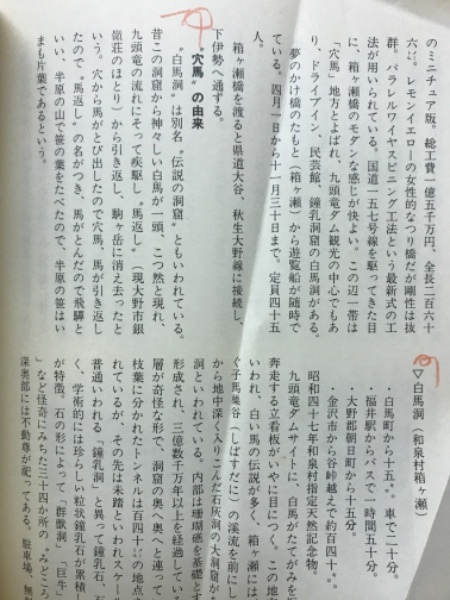 のミニチュア版。総工費一億五千万円、全長二百六十
六㍍。レモンイエローの女性的なつり橋だが剛性は抜
群。パラレルワイヤスピニング工法という最新式の工
法が用いられている。国道一五七号線を駆ってきた目
に、箱ヶ瀬橋のモダンな感じが快よい。この辺一帯は
「穴馬」地方とよばれ、九頭竜ダム観光の中心でもあ
り、ドライブイン、民芸館、鐘乳洞窟の白馬洞がある。
夢のかけ橋のたもと（箱ヶ瀬）から遊覧船が随時で
ている。四月一日から十一月三十日まで。定員四十五
人。
箱ヶ瀬橋を渡ると県道大谷、秋生大野線に接続し、
下伊勢へ通ずる。
〝穴馬〟の由来
〝白馬洞〟は別名〝伝説の洞窟〟ともいわれている。
昔この洞窟から神々しい白馬が一頭、こつ然と現れ、
九頭竜の流れにそって疾駆し〝馬返し〟（現大野市銀
嶺荘のほとり）から引き返し、駒ヶ岳に消え去ったと
いう。穴から馬がとび出したので穴馬、馬が引き返し
たので〝馬返し〟の名がつき、馬がとんだので飛驒と
いい、半原の山で笹の葉をたべたので、半原の笹はい
まも片葉であるという。
▽白馬洞（和泉村箱ヶ瀬）
・白鳥町から十五㌔。車で二十分。
・福井駅からバスで一時間五十分。
・大野郡朝日町から十五分。
・金沢市から谷峠越えで約百四十㌔。
昭和四十七年和泉村指定天然記念物。
九頭竜ダムサイトに、白馬がたてがみを
奔走する立看板がいやに目につく。この地
いわれ、白い馬の伝説が多く、箱ヶ瀬には
ぐ子馬巣谷（しばすだに）の渓流を前にし
から地中深く入りこんだ石灰洞の大洞窟が
洞といわれている。内部は珊瑚礁を基礎と
形成され、三億数千万年以上を経過してい
層が奇怪な形で、洞窟の奥へ奥へと連って
枝葉に分かれたトンネルは百四十㍍の地点
れているが、その先は未踏といわれスケー
普通いわれる「鐘乳洞」と異って鐘乳石、
く、学術的には珍らしい粒状鐘乳石が累積し
が特徴。石の形によって「群獣洞」「巨牛
」など怪奇にみちた三十四か所の〝みどころ
深奥部には不動尊が祀ってある。駐車場、無